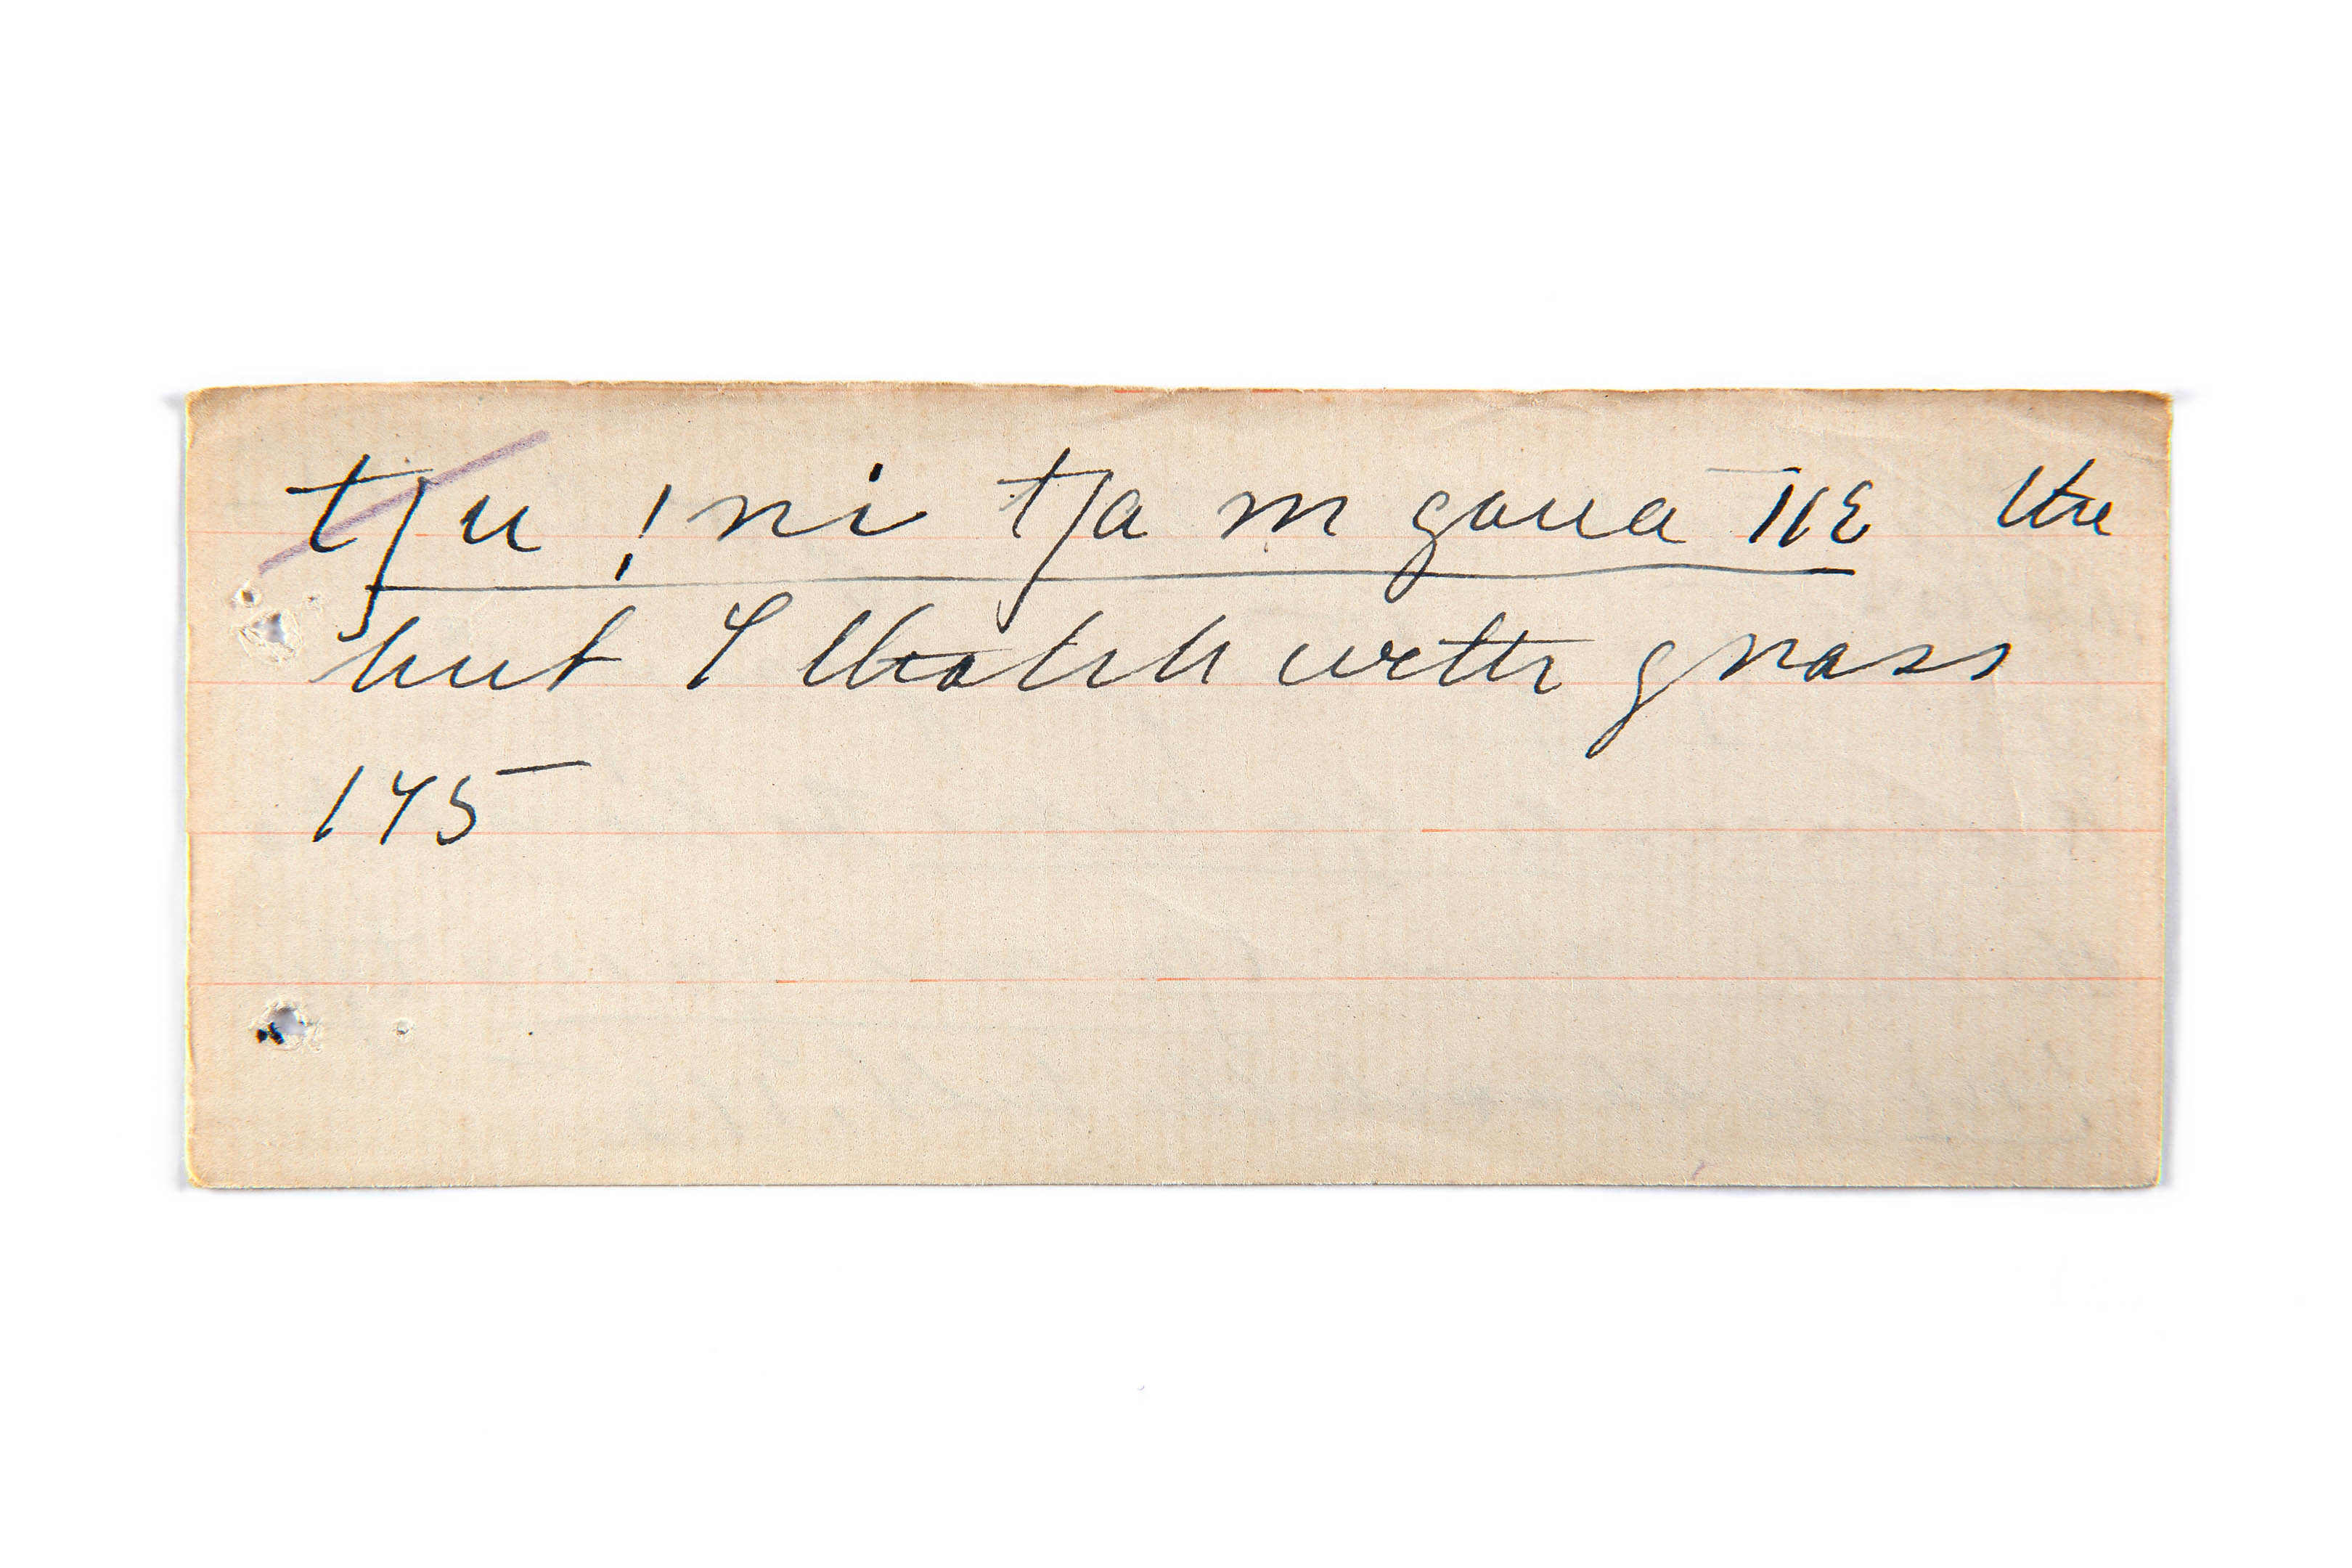 tʃu ! ni tʃa m goua ǁɛ the
hut I thatch with grass
145